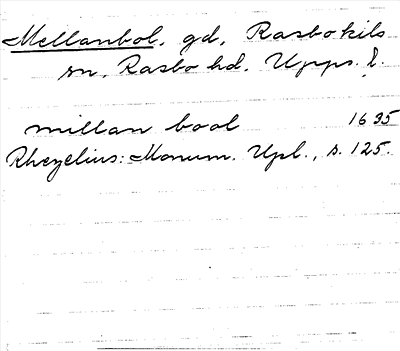 Mellanbol, gd, Rasbokils
sn, Rasbo hd. Upps. l.
millan bool 1635
Rhezelius: Monum. Upl., s. 125.